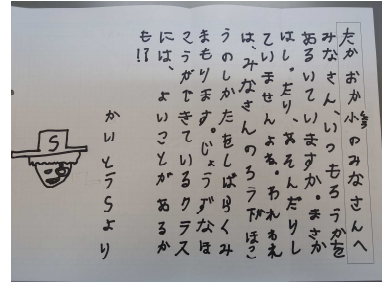 たかおか小のみなさんへ
みなさん、いつもろうかを
あるいていますか。まさか
はしったり、あそんだりし
ていませんよね。われわれ
は、みなさんのろう下ほこ
うのしかたをしばらくみ
まもります。じょうずなほ
こうができているクラス
には、よいことがあるか
も!?
かいとうSより
S